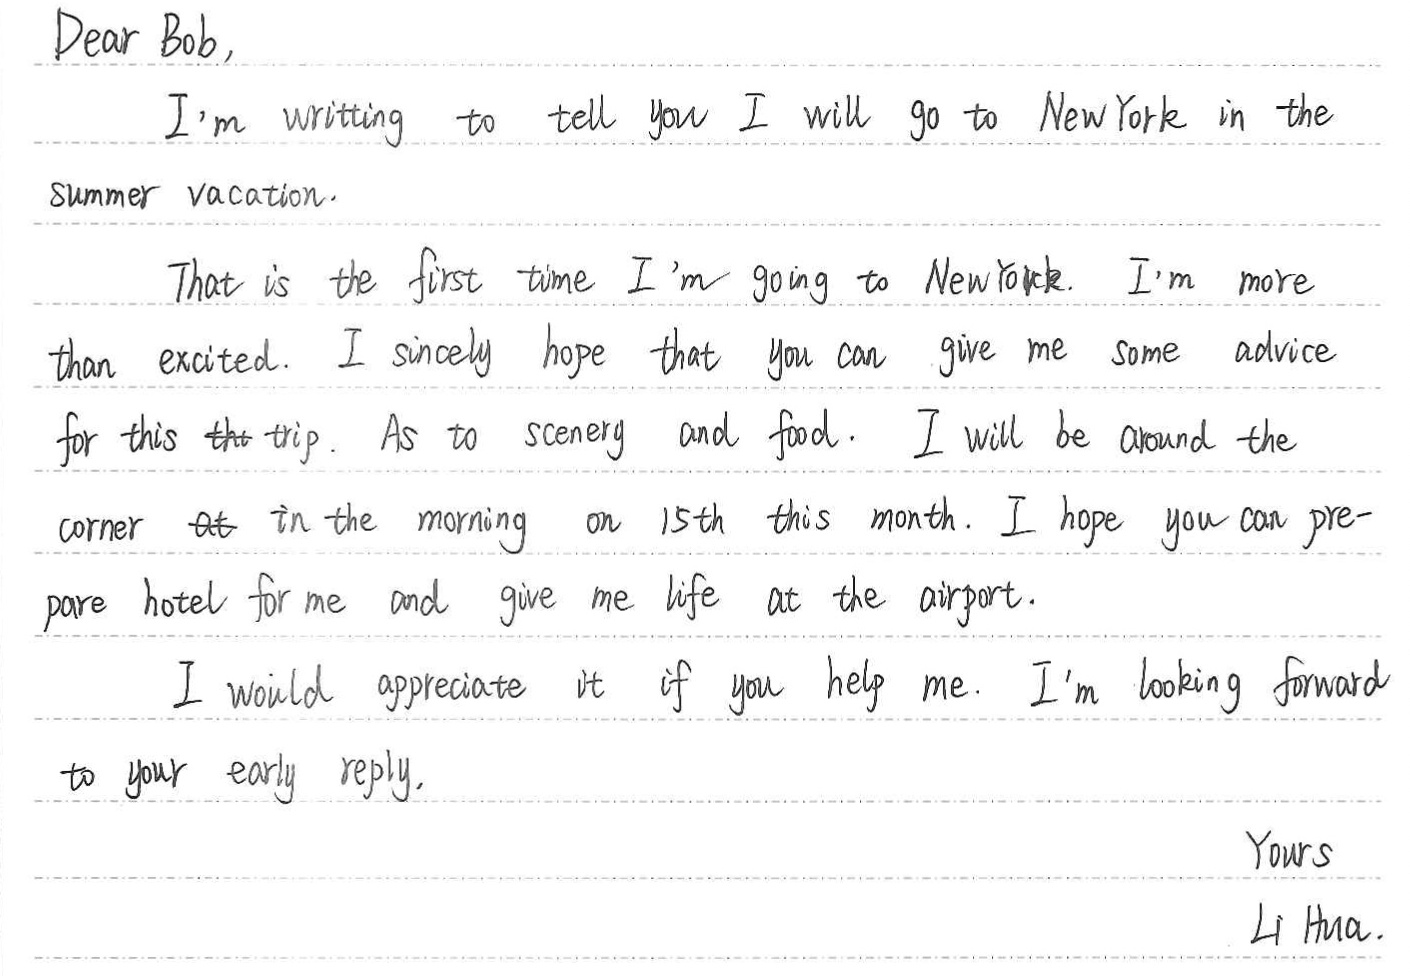 Dear Bob,
I'm writting to tell you I will go to New York in the
summer vacation.
That is the first time I'm going to New York. I'm more
than excited. I sincely hope that you can give me some advice
for this tht trip. As to scenery and food. I will be around the
corner at in the morning on 15th this month. I hope you can pre-
pare hotel for me and give me life at the airport.
I would appreciate it if you help me. I'm looking forward
to your early reply.
Yours
Li Hua.